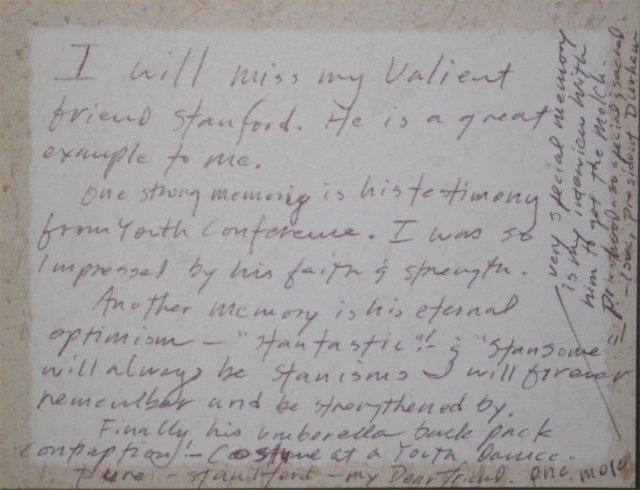 I will miss my Valient
friend Stanford. He is a great
example to me.
One strong memory is his testimony
from Youth Conference. I was so
impressed by his faith & strength.
Another memory is his eternal
optimism - "stantastic"!- & "Stansome"
will always be Stanisms I will forever
remember and be strengthened by.
Finally his umberella back pack
contraption - Costume at a Youth Dance.
Pure - standford - my Dear friend. One more
very special memory
is my interview with
him to get the Melch.
Priesthood - so special & sacred.
- Love, President Dunham